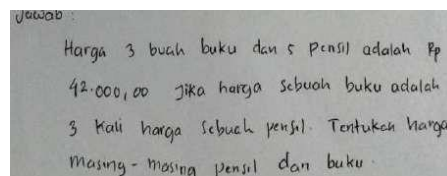 Jawab :
Harga 3 buah buku dan 5 pensil adalah Rp
42.000,00 Jika harga sebuah buku adalah
3 kali harga sebuah pensil. Tentukan harga
masing-masing pensil dan buku.